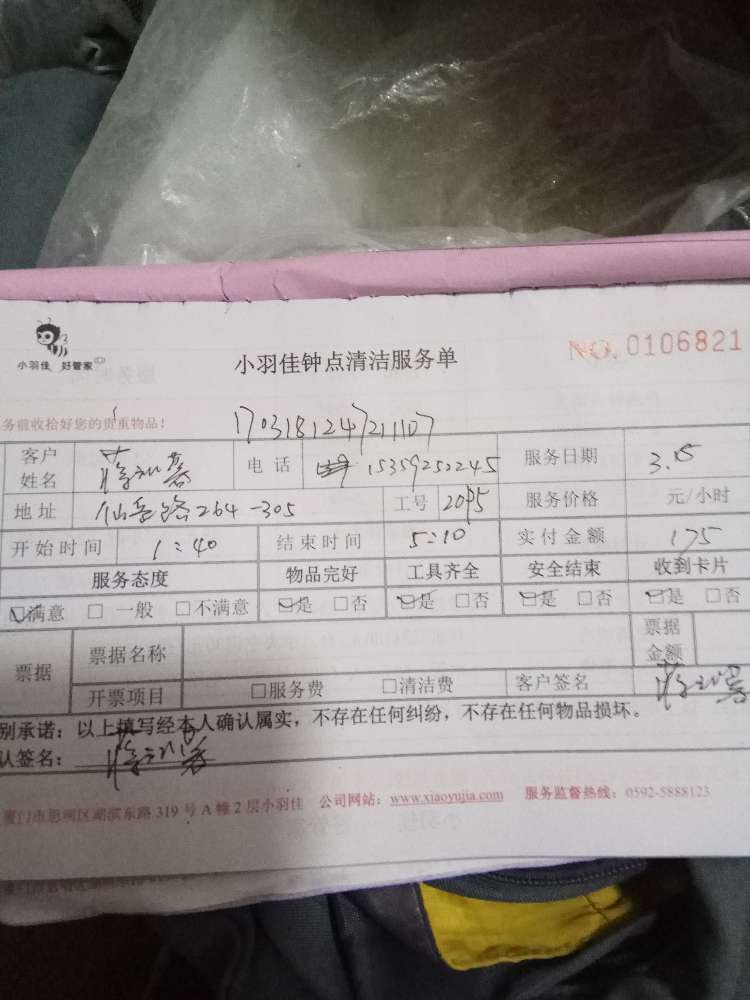 小羽佳 好管家
小羽佳钟点清洁服务单
NO. 0106821
务前收拾好您的贵重物品!
1703181247211107
客户姓名 电话 15359252245 服务日期 3.15
地址 仙岳路264-305 工号 2095 服务价格 元/小时
开始时间 1:40 结束时间 5:10 实付金额 175
服务态度 物品完好 工具齐全 安全结束 收到卡片
☑满意 □一般 □不满意 ☑是 □否 ☑是 □否 ☑是 □否 ☑是 □否
票据 票据名称 票据金额
开票项目 □服务费 □清洁费 客户签名
别承诺:以上填写经本人确认属实,不存在任何纠纷,不存在任何物品损坏。
认签名:
厦门市思明区湖滨东路319号A幢2层小羽佳 公司网站:www.xiaoyujia.com 服务监督热线:0592-5888123